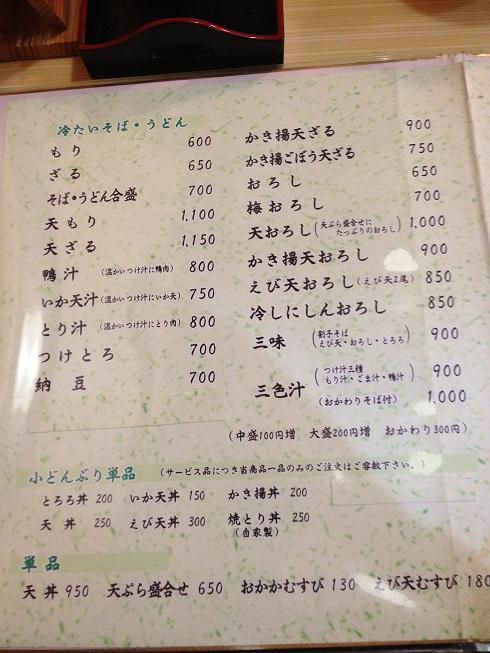 冷たいそば・うどん
もり 600
ざる 650
そば・うどん合盛 700
天もり 1,100
天ざる 1,150
鴨汁 (温かいつけ汁に鴨肉) 800
いか天汁 (温かいつけ汁にいか天) 750
とり汁 (温かいつけ汁にとり肉) 800
つけとろ 700
納豆 700
かき揚天ざる 900
かき揚ごぼう天ざる 750
おろし 650
梅おろし 700
天おろし (天ぷら盛合せにたっぷりのおろし) 1,000
かき揚天おろし 900
えび天おろし (えび天2尾) 850
冷しにしんおろし 850
三味 (割子そば えび天・おろし・とろろ) 900
三色汁 (つけ汁三種 もり汁・ごま汁・鴨汁) 900
(おかわりそば付) 1,000
(中盛100円増 大盛200円増 おかわり300円)
小どんぶり単品 (サービス品につき当商品一品のみのご注文はご容赦下さい。)
とろろ丼 200 いか天丼 150 かき揚丼 200
天丼 250 えび天丼 300 焼とり丼 250
(自家製)
単品
天丼 950 天ぷら盛合せ 650 おかかむすび 130 えび天むすび 180